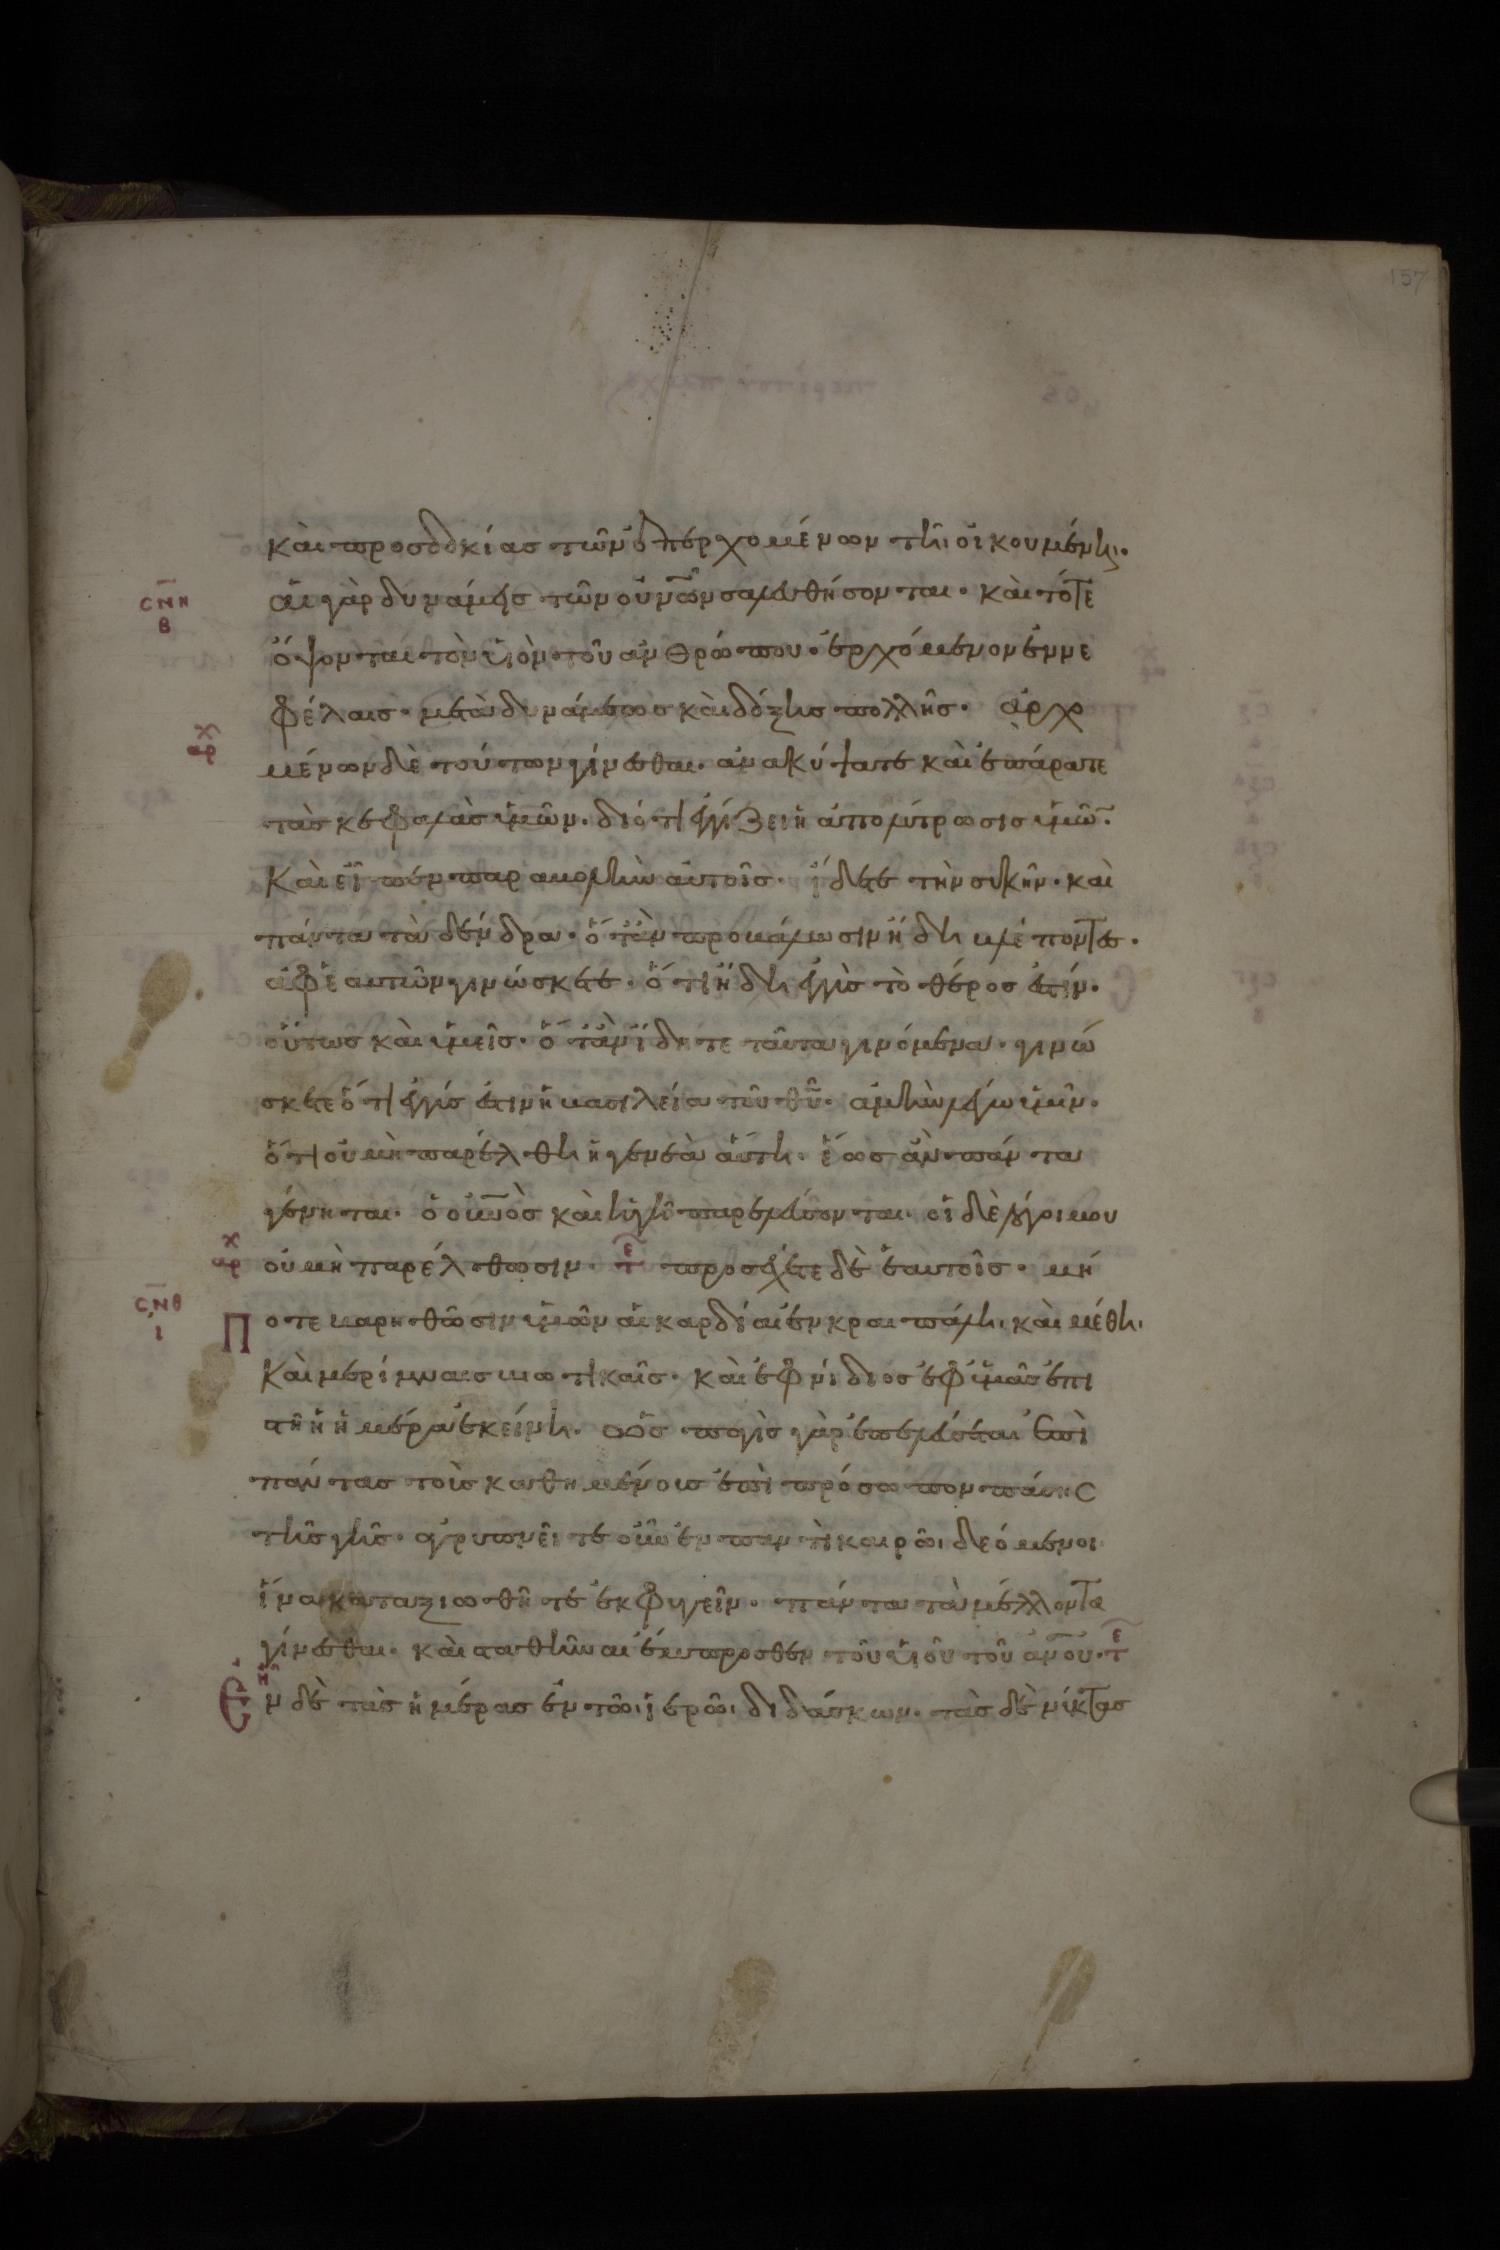 157
καὶ προσδοκίας τῶν ἐπερχομένων τῆι οἰκουμένηι·
σνη αἱ γὰρ δυνάμεις τῶν οὐνῶν σαλευθήσονται· καὶ τότε
β
ὄψονται τὸν υἱὸν τοῦ ἀνθρώπου· ἐρχόμενον ἐν νε
φέλαις· μετὰ δυνάμεως καὶ δόξης πολλῆς· ἀρχο
αρχ μένων δὲ τούτων γίνεσθαι· ἀνακύψατε καὶ ἐπάρατε
τὰς κεφαλὰς ὑμῶν· διότι ἐγγίζει ἡ ἀπολύτρωσις ὑμῶ·
Καὶ εἶπεν παραβολὴν αὐτοῖς· ἴδετε τὴν συκῆν· καὶ
πάντα τὰ δένδρα· ὅταν προβάλωσιν ἤδη βλέποντες·
ἀφ' ἑαυτῶν γινώσκετε· ὅτι ἤδη ἐγγὺς τὸ θέρος ἐστίν·
οὕτως καὶ ὑμεῖς· ὅταν ἴδητε ταῦτα γινόμενα· γινώ
σκετε ὅτι ἐγγύς ἐστιν ἡ βασιλεία τοῦ θυ· ἀμὴν λέγω ὑμῖν·
ὅτι οὐ μὴ παρέλθη ἡ γενεὰ αὕτη· ἕως ἂν πάντα
γένηται· ὁ οὐνὸς καὶ ἡ γῆ παρελεύσονται· οἱ δὲ λόγοι μου
αρχ οὐ μὴ παρέλθωσιν· τε προσέχετε δὲ ἑαυτοῖς· μή
σνθ Ποτε βαρηθῶσιν ὑμῶν αἱ καρδίαι ἐν κραιπάλη· καὶ μέθη·
ι
καὶ μερίμναις βιωτικαῖς· καὶ ἐφνίδιος ἐφ' ὑμᾶς ἐπι
στῆ ἡ ἡμέρα ἐκείνη· ὡς παγὶς γὰρ ἐπελεύσεται ἐπὶ
πάντας τοὺς καθημένους ἐπὶ πρόσωπον πάσης
τῆς γῆς· ἀγρυπνεῖτε οὖν ἐν παντὶ καιρῶι δεόμενοι
ἵνα καταξιωθῆτε ἐκφυγεῖν· πάντα τὰ μέλλοντα
γίνεσθαι· καὶ σταθῆναι ἔμπροσθεν τοῦ υἱοῦ τοῦ ανου· τε
Ἦν δὲ τὰς ἡμέρας ἐν τῶι ἱερῶι διδάσκων· τὰς δὲ νύκτας